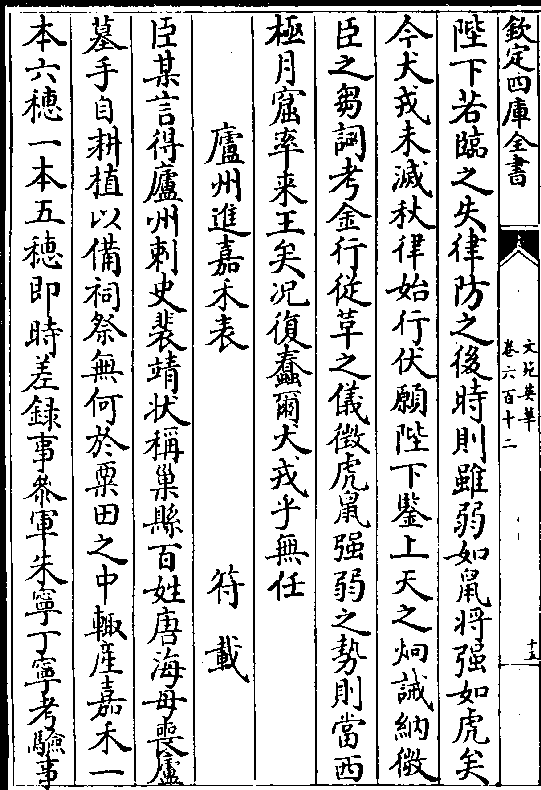 欽定四庫全書
文苑英華
卷六百十二
十五
陛下若臨之失律防之後時則雖弱如鼠將强如虎矣
今犬戎未滅秋律始行伏願陛下鑒上天之炯誡納微
臣之芻詞考金行從革之儀徴虎鼠强弱之勢則當西
極月窟率来王矣况復蠢爾犬戎乎無任
廬州進嘉禾表
符載
臣某言得廬州刺史裴靖状稱巢縣百姓唐海母喪廬
墓手自耕植以備祠祭無何於粟田之中輙産嘉禾一
本六穗一本五穗即時差録事叅軍朱寧丁寧考驗事